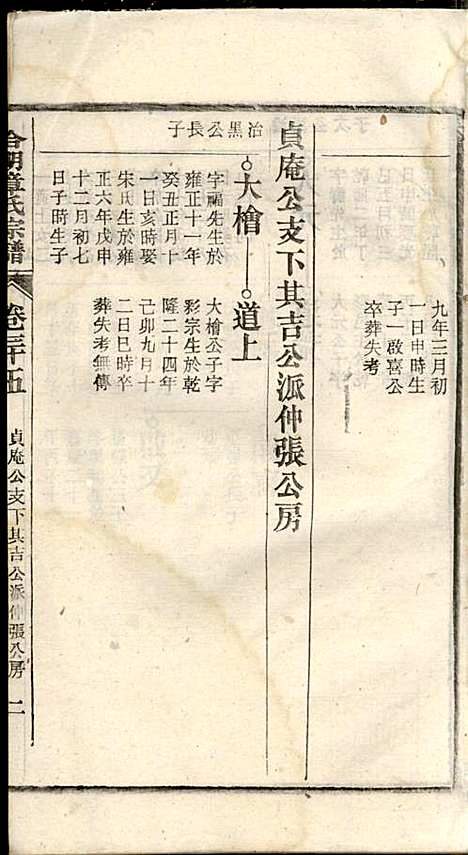 九年三月初
一日申時生
子一啟喜公
卒葬失考
貞庵公支下其吉公派仲張公房
治黑公長子
大檜
道上
字福先生於
雍正十一年
癸丑正月十
一日亥時娶
宋氏生於雍
正六年戊申
十二月初七
日子時生子
大檜公子字
彩宗生於乾
隆二十四年
己卯九月十
二日巳時卒
葬失考無傳
章氏宗譜
卷三十五
貞庵公支下其吉公派仲張公房
二